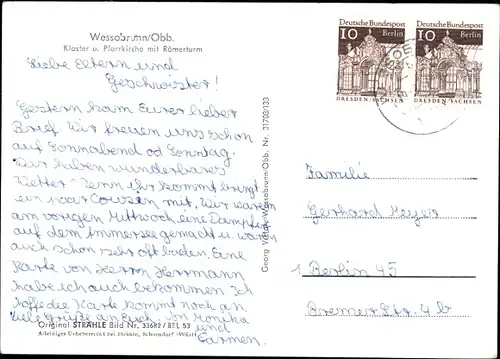 Wessobrunn/Obb.
Kloster u. Pfarrkirche mit Römerturm
Liebe Eltern und
Geschwister!
Gestern kam Eurer lieber
Brief. Wir freuen uns schon
auf Sonnabend od Sonntag.
Wir haben wunderbares
Wetter. Wenn ihr kommt bringt
ein paar Cousien mit. Wir waren
am vorigen Mittwoch eine Dampfer
auf dem Ammersee gemacht u. waren
auch schon sehr oft baden. Eine
Karte von Herrn Herrmann
habe ich auch bekommen. Ich
hoffe die Karte kommt noch an.
Viele Grüße an Euch. Monika
und
Carmen.
Original STRÄHLE Bild Nr. 33682/BEL 53
Alleiniges Urheberrecht bei Strähle, Schorndorf/Württ.
Georg Vetter, Wessobrunn/Obb. Nr. 31700/133
Deutsche Bundespost
10 Berlin
DRESDEN/SACHSEN
Deutsche Bundespost
10 Berlin
DRESDEN/SACHSEN
Familie
Gerhard Meyer
1 Berlin 45
Bremer Str. 4 b